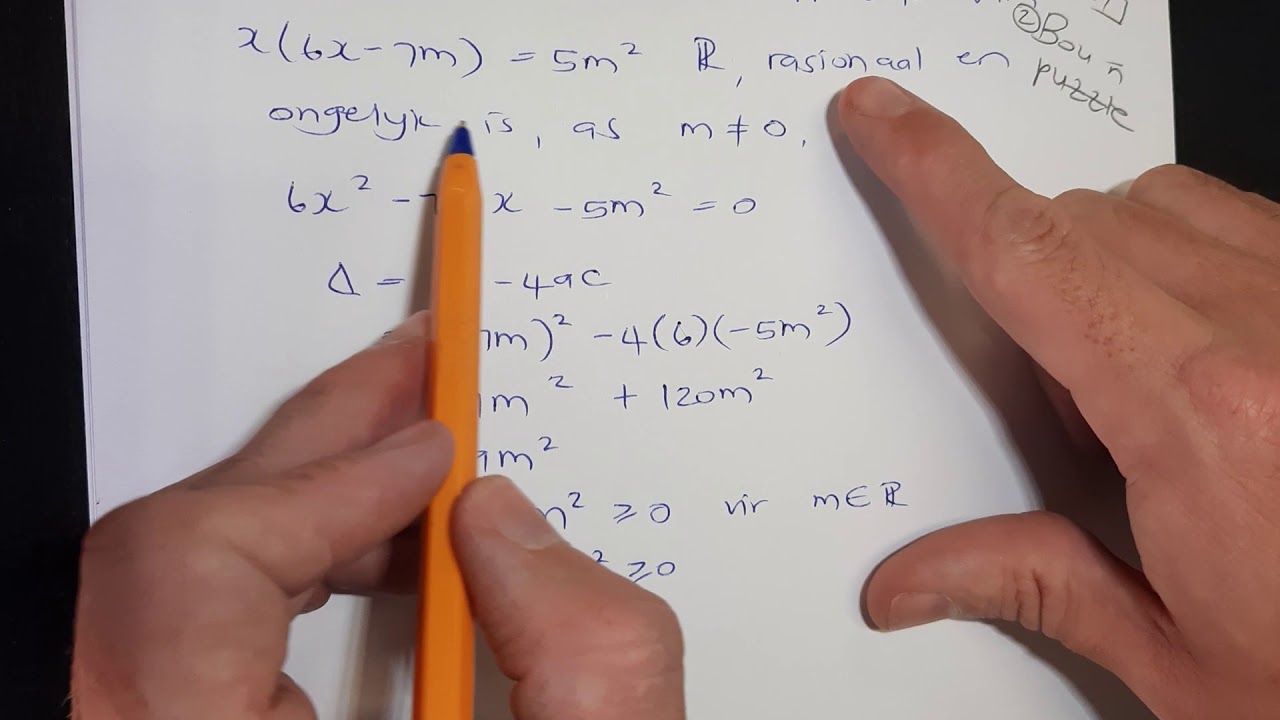 ② Bou ñ
puzzle
x(6x - 7m) = 5m² ℝ, rasionaal en
ongelyk is, as m ≠ 0,
6x² - 7 x - 5m² = 0
Δ = - 4ac
7m)² - 4(6)(-5m²)
m² + 120m²
9m²
m² ≥ 0 vir m ∈ ℝ
² ≥ 0